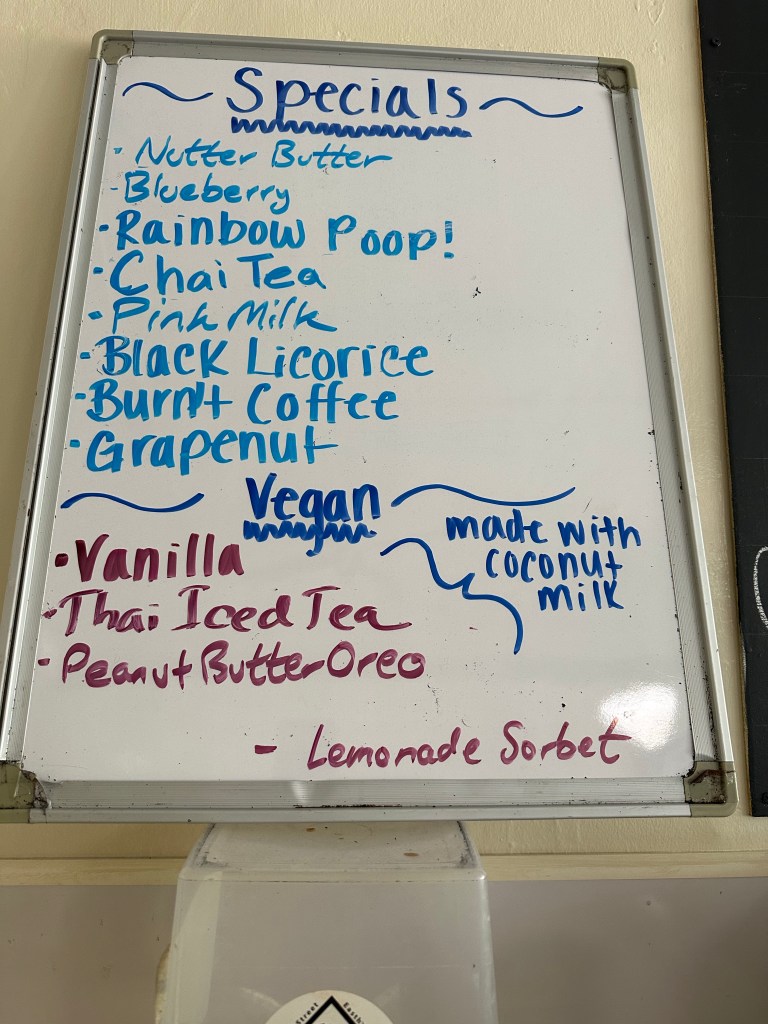 ~ Specials ~
· Nutter Butter
· Blueberry
· Rainbow Poop!
· Chai Tea
· Pink Milk
· Black Licorice
· Burn't Coffee
· Grapenut
~ Vegan ~
made with
coconut
milk
· Vanilla
· Thai Iced Tea
· Peanut Butter Oreo
- Lemonade Sorbet
Street